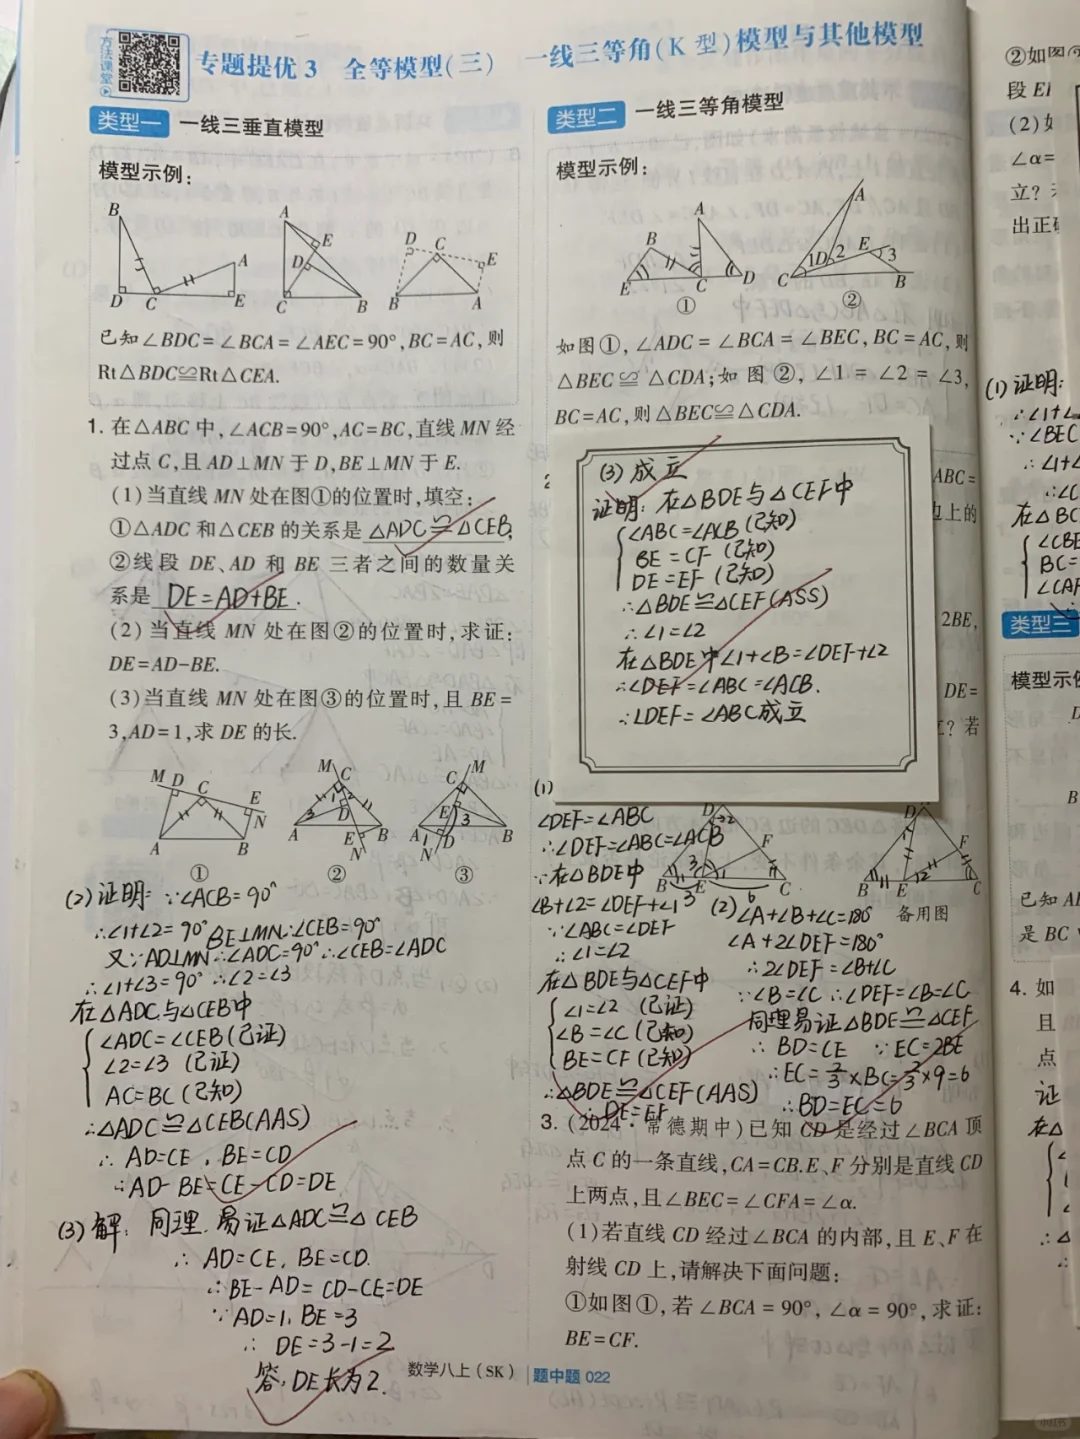 方法课堂
专题提优3 全等模型(三) 一线三等角(K型)模型与其他模型
类型一 一线三垂直模型
模型示例:
B
A
D C E
A
E
D
C B
D C E
B A
已知∠BDC=∠BCA=∠AEC=90°,BC=AC,则
Rt△BDC≌Rt△CEA.
1. 在△ABC中,∠ACB=90°,AC=BC,直线MN经
过点C,且AD⊥MN于D,BE⊥MN于E.
(1)当直线MN处在图①的位置时,填空:
①△ADC和△CEB的关系是 △ADC≌△CEB;
②线段DE、AD和BE三者之间的数量关
系是 DE=AD+BE.
(2)当直线MN处在图②的位置时,求证:
DE=AD-BE.
(3)当直线MN处在图③的位置时,且BE=
3,AD=1,求DE的长.
M D C E N
A B
①
M C
1 2
3 D
A E B
N
②
C M
E 3
A 1 D B
N
③
(2)证明:∵∠ACB=90°
∴∠1+∠2=90° BE⊥MN∴∠CEB=90°
又∵AD⊥MN∴∠ADC=90°∴∠CEB=∠ADC
∴∠1+∠3=90°∴∠2=∠3
在△ADC与△CEB中
∠ADC=∠CEB(已证)
∠2=∠3 (已证)
AC=BC(已知)
∴△ADC≌△CEB(AAS)
∴AD=CE,BE=CD
∴AD-BE=CE-CD=DE
(3)解:同理.易证△ADC≌△CEB
∴AD=CE,BE=CD.
∴BE-AD=CD-CE=DE
∵AD=1,BE=3
∴DE=3-1=2
答:DE长为2.
类型二 一线三等角模型
模型示例:
A
B
E C D
①
A
1 D 2 E 3
C B
②
如图①,∠ADC=∠BCA=∠BEC,BC=AC,则
△BEC≌△CDA;如图②,∠1=∠2=∠3,
BC=AC,则△BEC≌△CDA.
2
ABC=
边上的
2BE,
DE=
立?若
(3)成立
证明:在△BDE与△CEF中
∠ABC=∠ACB(已知)
BE=CF(已知)
DE=EF(已知)
∴△BDE≌△CEF(ASS)
∴∠1=∠2
在△BDE中∠1+∠B=∠DEF+∠2
∴∠DEF=∠ABC=∠ACB.
∴∠DEF=∠ABC成立
(1)
∠DEF=∠ABC
∴∠DEF=∠ABC=∠ACB
∵在△BDE中
∠B+∠2=∠DEF+∠1
∵∠ABC=∠DEF
∴∠1=∠2
在△BDE与△CEF中
∠1=∠2 (已证)
∠B=∠C(已知)
BE=CF(已知)
∴△BDE≌△CEF(AAS)
∴DE=EF
D 2
F
B 3 E 1 C
6
D
1
F
B E 2 C
备用图
(2)∠A+∠B+∠C=180°
∠A+2∠DEF=180°
∴2∠DEF=∠B+∠C
∵∠B=∠C∴∠DEF=∠B=∠C
同理易证△BDE≌△CEF
∴BD=CE ∵EC=2BE
∴EC=2/3×BC=2/3×9=6
∴BD=EC=6
3. (2024·常德期中)已知CD是经过∠BCA顶
点C的一条直线,CA=CB.E、F分别是直线CD
上两点,且∠BEC=∠CFA=∠α.
(1)若直线CD经过∠BCA的内部,且E、F在
射线CD上,请解决下面问题:
①如图①,若∠BCA=90°,∠α=90°,求证:
BE=CF.
数学八上(SK) 题中题 022
②如图
段E
(2)如
∠α=
立?
出正确
(1)证明:
∴∠1+∠
∵∠BEC
∴∠1+∠
∴∠C
在△BC
∠CBE
BC=
∠CAF
类型三
模型示例
D
B
已知A
是BC
4. 如
且
点
证
在△